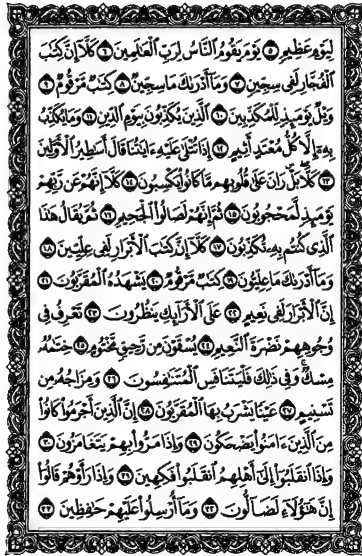 لِيَوْمٍ عَظِيمٍ ۝٥ يَوْمَ يَقُومُ النَّاسُ لِرَبِّ الْعَٰلَمِينَ ۝٦ كَلَّآ إِنَّ كِتَٰبَ
الْفُجَّارِ لَفِى سِجِّينٍ ۝٧ وَمَآ أَدْرَىٰكَ مَا سِجِّينٌ ۝٨ كِتَٰبٌ مَّرْقُومٌ ۝٩
وَيْلٌ يَوْمَئِذٍ لِّلْمُكَذِّبِينَ ۝١٠ الَّذِينَ يُكَذِّبُونَ بِيَوْمِ الدِّينِ ۝١١ وَمَا يُكَذِّبُ
بِهِۦٓ إِلَّا كُلُّ مُعْتَدٍ أَثِيمٍ ۝١٢ إِذَا تُتْلَىٰ عَلَيْهِ ءَايَٰتُنَا قَالَ أَسَٰطِيرُ الْأَوَّلِينَ
۝١٣ كَلَّا ۖ بَلْ رَانَ عَلَىٰ قُلُوبِهِم مَّا كَانُوا۟ يَكْسِبُونَ ۝١٤ كَلَّآ إِنَّهُمْ عَن رَّبِّهِمْ
يَوْمَئِذٍ لَّمَحْجُوبُونَ ۝١٥ ثُمَّ إِنَّهُمْ لَصَالُوا۟ الْجَحِيمِ ۝١٦ ثُمَّ يُقَالُ هَٰذَا
الَّذِى كُنتُم بِهِۦ تُكَذِّبُونَ ۝١٧ كَلَّآ إِنَّ كِتَٰبَ الْأَبْرَارِ لَفِى عِلِّيِّينَ ۝١٨
وَمَآ أَدْرَىٰكَ مَا عِلِّيُّونَ ۝١٩ كِتَٰبٌ مَّرْقُومٌ ۝٢٠ يَشْهَدُهُ الْمُقَرَّبُونَ ۝٢١
إِنَّ الْأَبْرَارَ لَفِى نَعِيمٍ ۝٢٢ عَلَى الْأَرَآئِكِ يَنظُرُونَ ۝٢٣ تَعْرِفُ فِى
وُجُوهِهِمْ نَضْرَةَ النَّعِيمِ ۝٢٤ يُسْقَوْنَ مِن رَّحِيقٍ مَّخْتُومٍ ۝٢٥ خِتَٰمُهُۥ
مِسْكٌ ۚ وَفِى ذَٰلِكَ فَلْيَتَنَافَسِ الْمُتَنَٰفِسُونَ ۝٢٦ وَمِزَاجُهُۥ مِن
تَسْنِيمٍ ۝٢٧ عَيْنًا يَشْرَبُ بِهَا الْمُقَرَّبُونَ ۝٢٨ إِنَّ الَّذِينَ أَجْرَمُوا۟ كَانُوا۟
مِنَ الَّذِينَ ءَامَنُوا۟ يَضْحَكُونَ ۝٢٩ وَإِذَا مَرُّوا۟ بِهِمْ يَتَغَامَزُونَ ۝٣٠
وَإِذَا انقَلَبُوٓا۟ إِلَىٰٓ أَهْلِهِمُ انقَلَبُوا۟ فَكِهِينَ ۝٣١ وَإِذَا رَأَوْهُمْ قَالُوٓا۟
إِنَّ هَٰٓؤُلَآءِ لَضَآلُّونَ ۝٣٢ وَمَآ أُرْسِلُوا۟ عَلَيْهِمْ حَٰفِظِينَ ۝٣٣